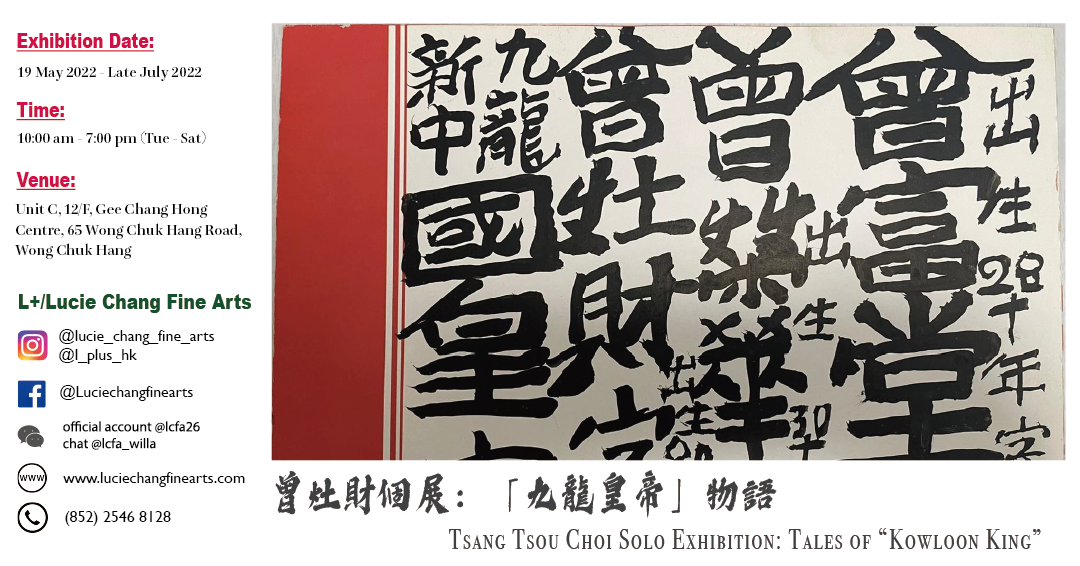 Exhibition Date:
19 May 2022 - Late July 2022
Time:
10:00 am - 7:00 pm (Tue - Sat)
Venue:
Unit C, 12/F, Gee Chang Hong
Centre, 65 Wong Chuk Hang Road,
Wong Chuk Hang
L+/Lucie Chang Fine Arts
@lucie_chang_fine_arts
@l_plus_hk
@Luciechangfinearts
official account @lcfa26
chat @lcfa_willa
www
www.luciechangfinearts.com
(852) 2546 8128
出生28十年字
曾富堂
出生30十
曾榮華
曾灶財
出生
九龍
新中國皇
曾灶財個展：「九龍皇帝」物語
Tsang Tsou Choi Solo Exhibition: Tales of “Kowloon King”